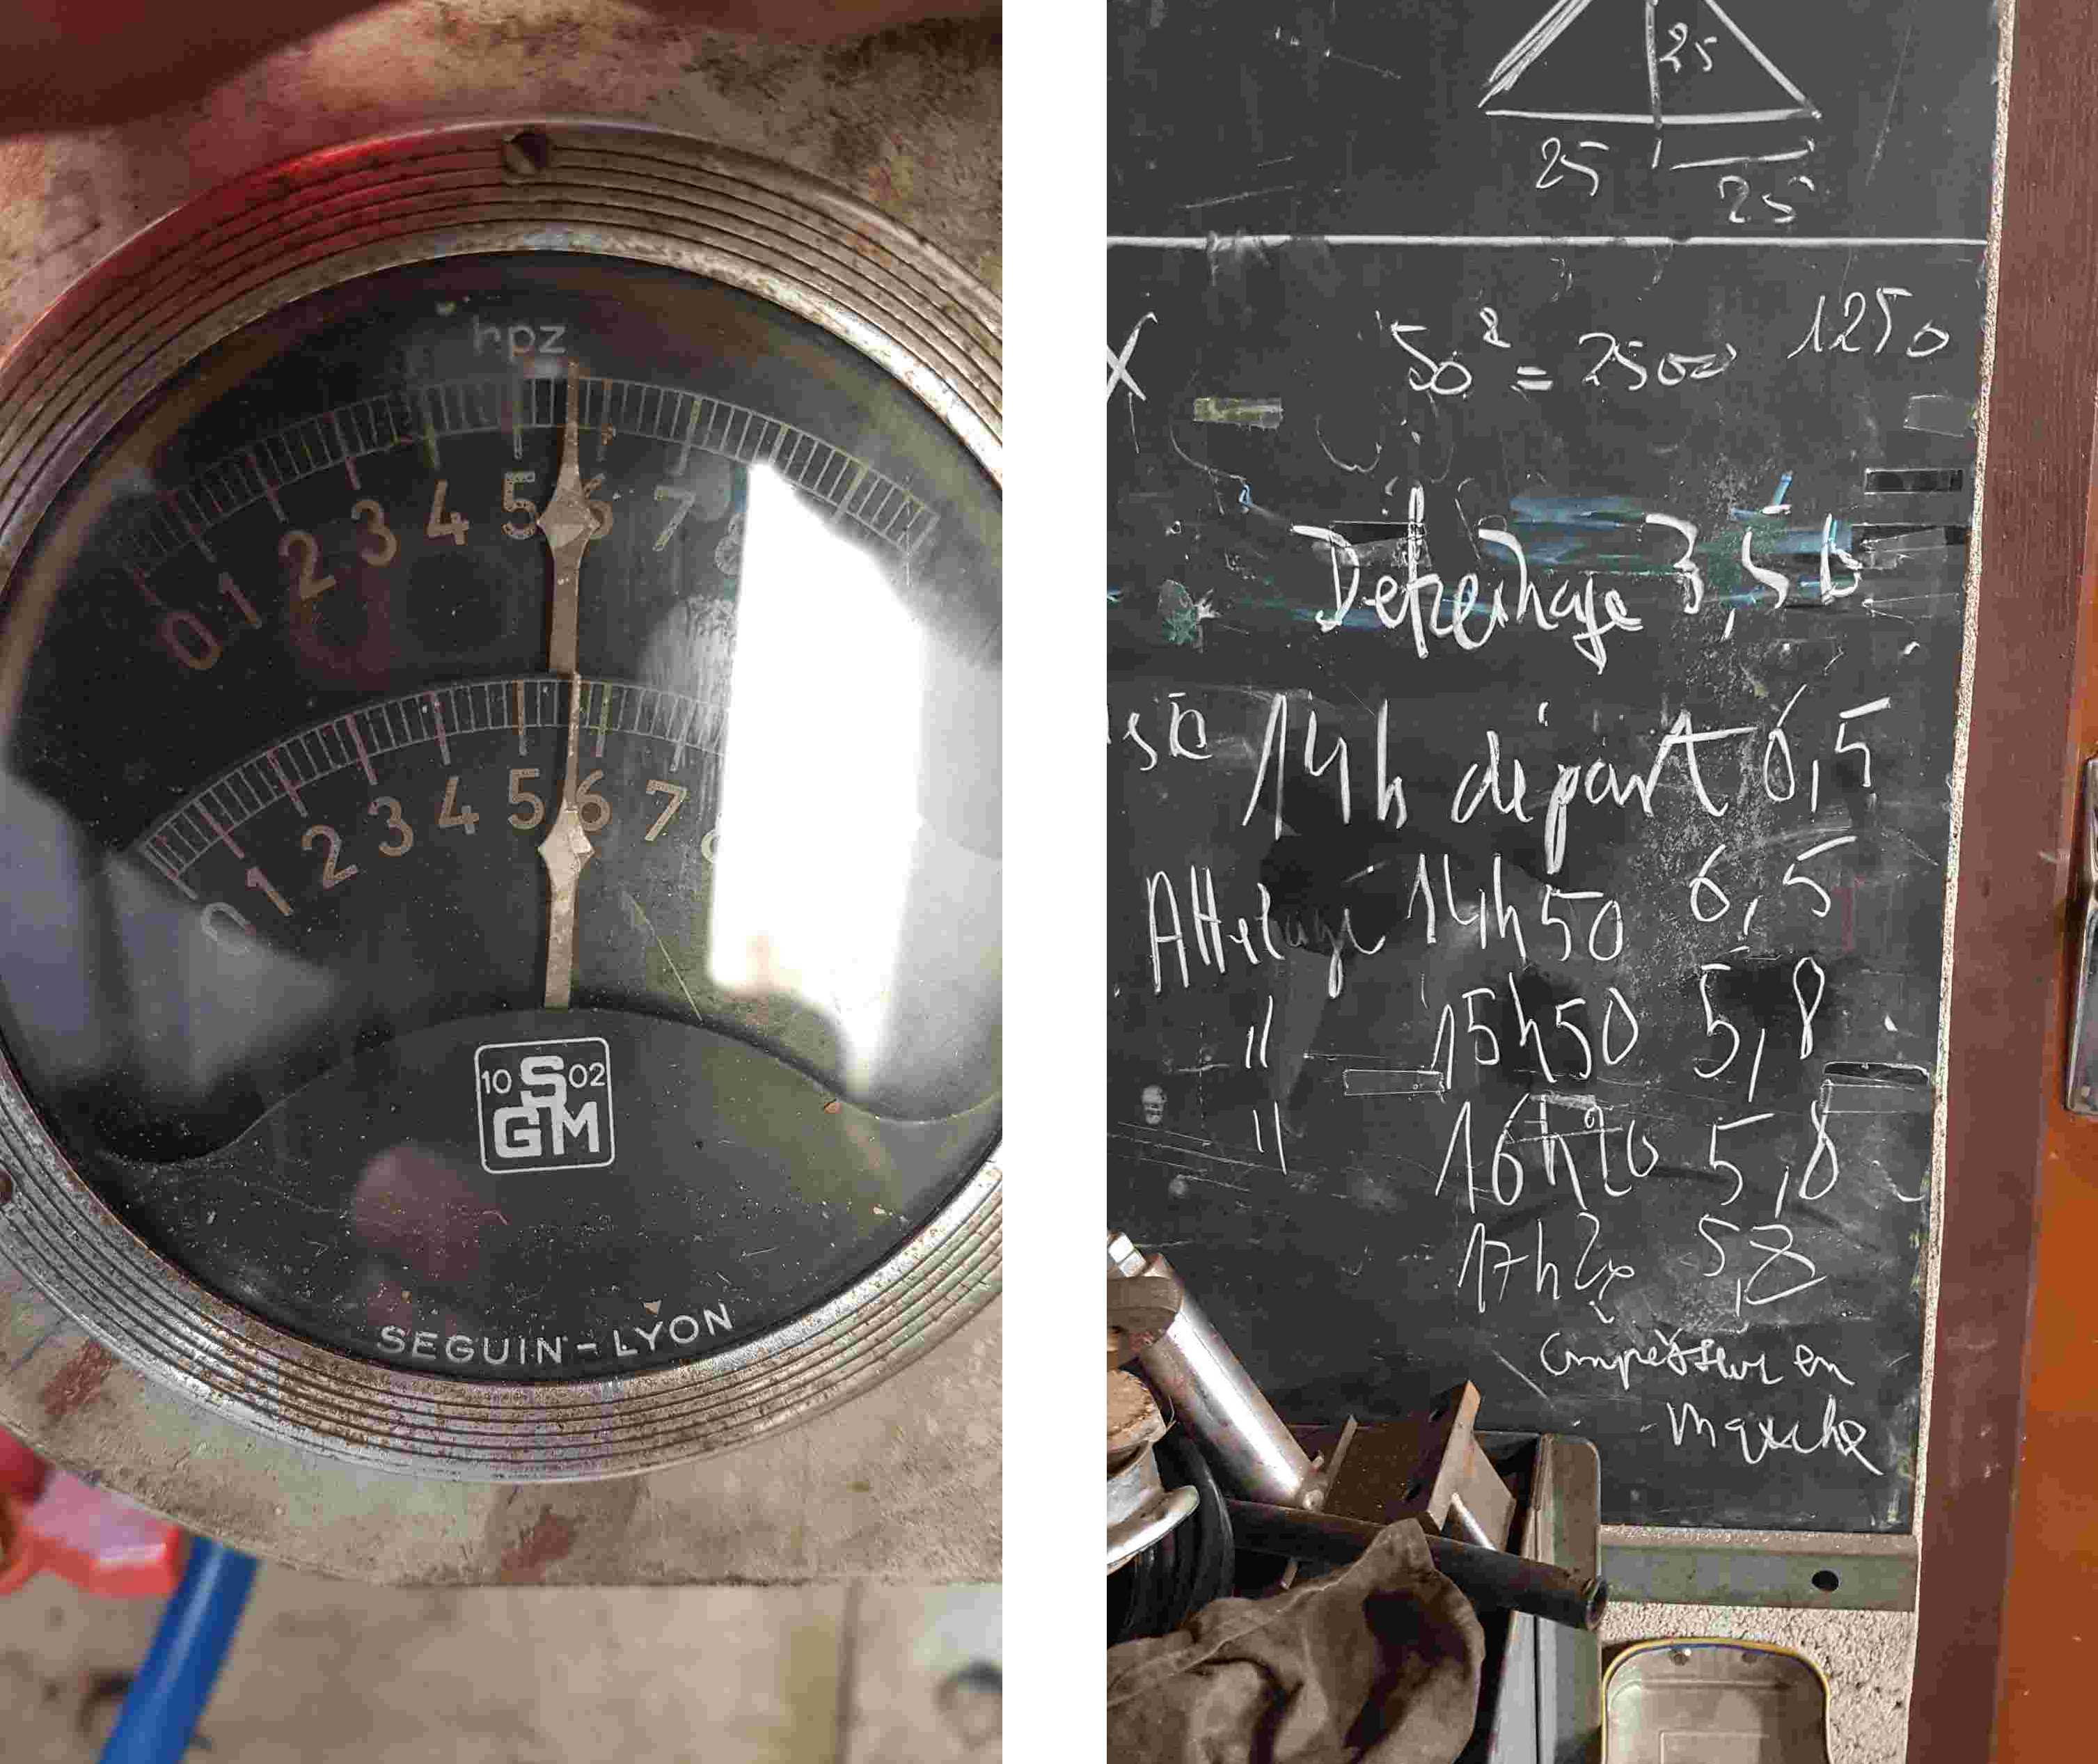 hpz
0 1 2 3 4 5 6 7 8
0 1 2 3 4 5 6 7
10 S 02
GTM
SEGUIN-LYON
25
25 25
X 50² = 2500 1250
3,5 b
14h départ 6,5
Attelage 14h50 6,5
" 15h50 5,8
" 16h20 5,8
17h 5,8
Compresseur en
marche